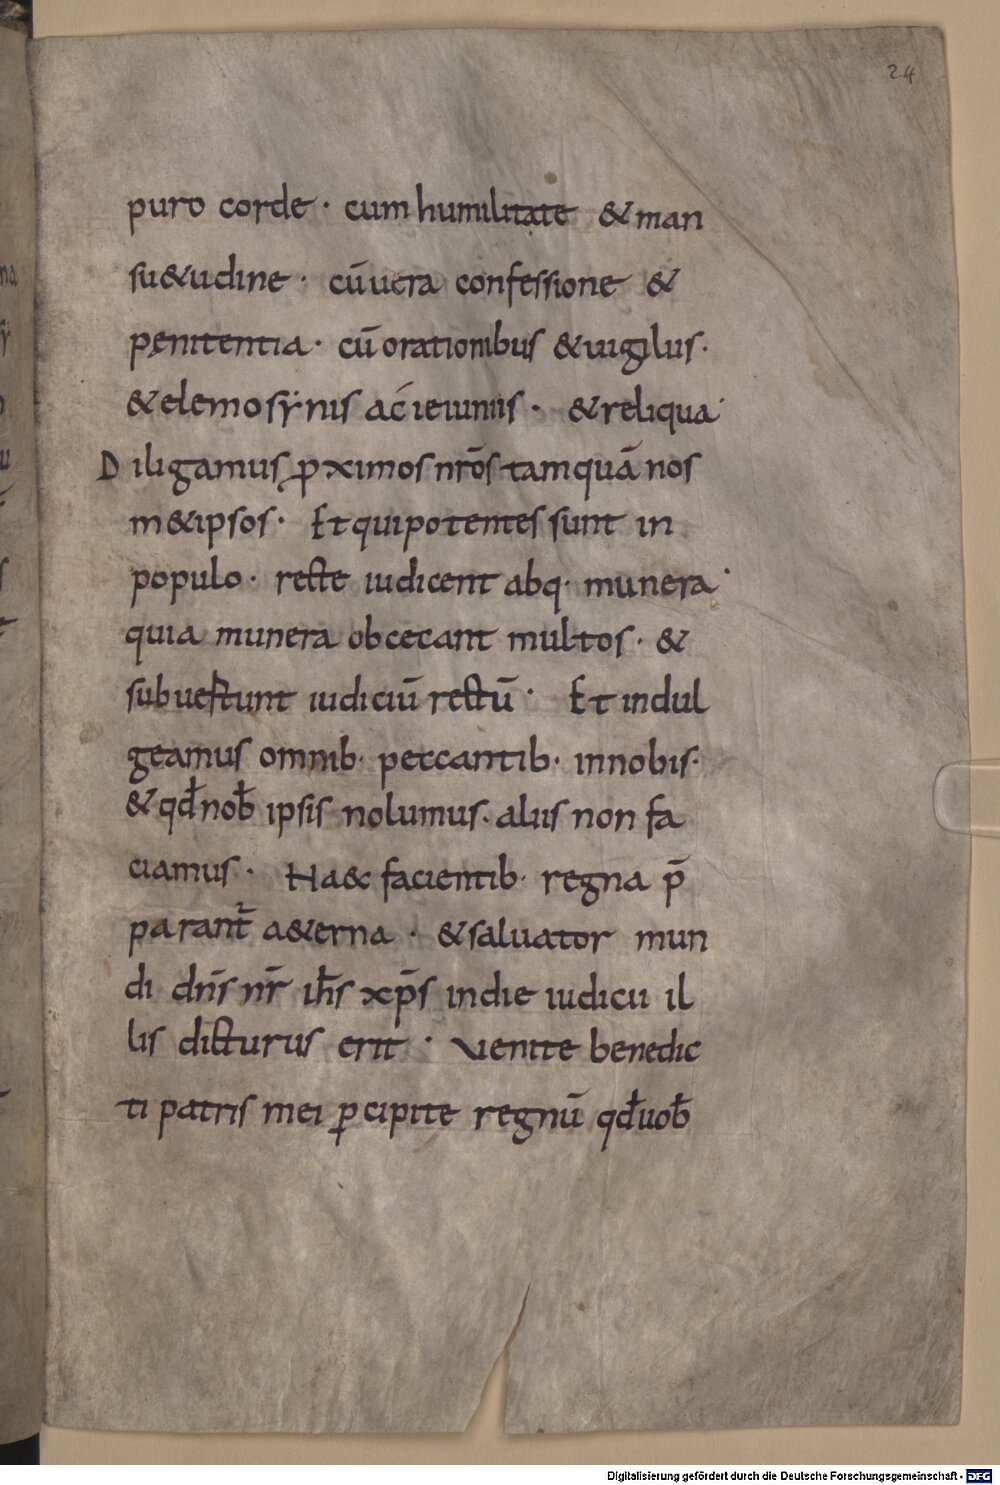 24
puro corde · cum humilitate & man
su&udine · cū uera confessione &
pęnitentia · cū orationibus & uigiliis ·
& elemosẏnis ac ieiuniis · & reliqua
Diligamus ꝓximos nr̄os tamquā nos
m&ipsos · Et qui potentes sunt in
populo · recte iudicent absq· munera ·
quia munera obcecant multos · &
subuertunt iudiciū rectū · Et indul
geamus omnib· peccantib· in nobis ·
& qd̄ nob̄ ipsis nolumus · aliis non fa
ciamus · Haec facientib· regna p̄
parant̄ a&erna · & saluator mun
di dn̄s nr̄ ih̄s xp̄s in die iudicii il
lis dicturus erit · Uenite benedic
ti patris mei ꝑcipite regnū qd̄ uob̄
Digitalisierung gefördert durch die Deutsche Forschungsgemeinschaft - DFG